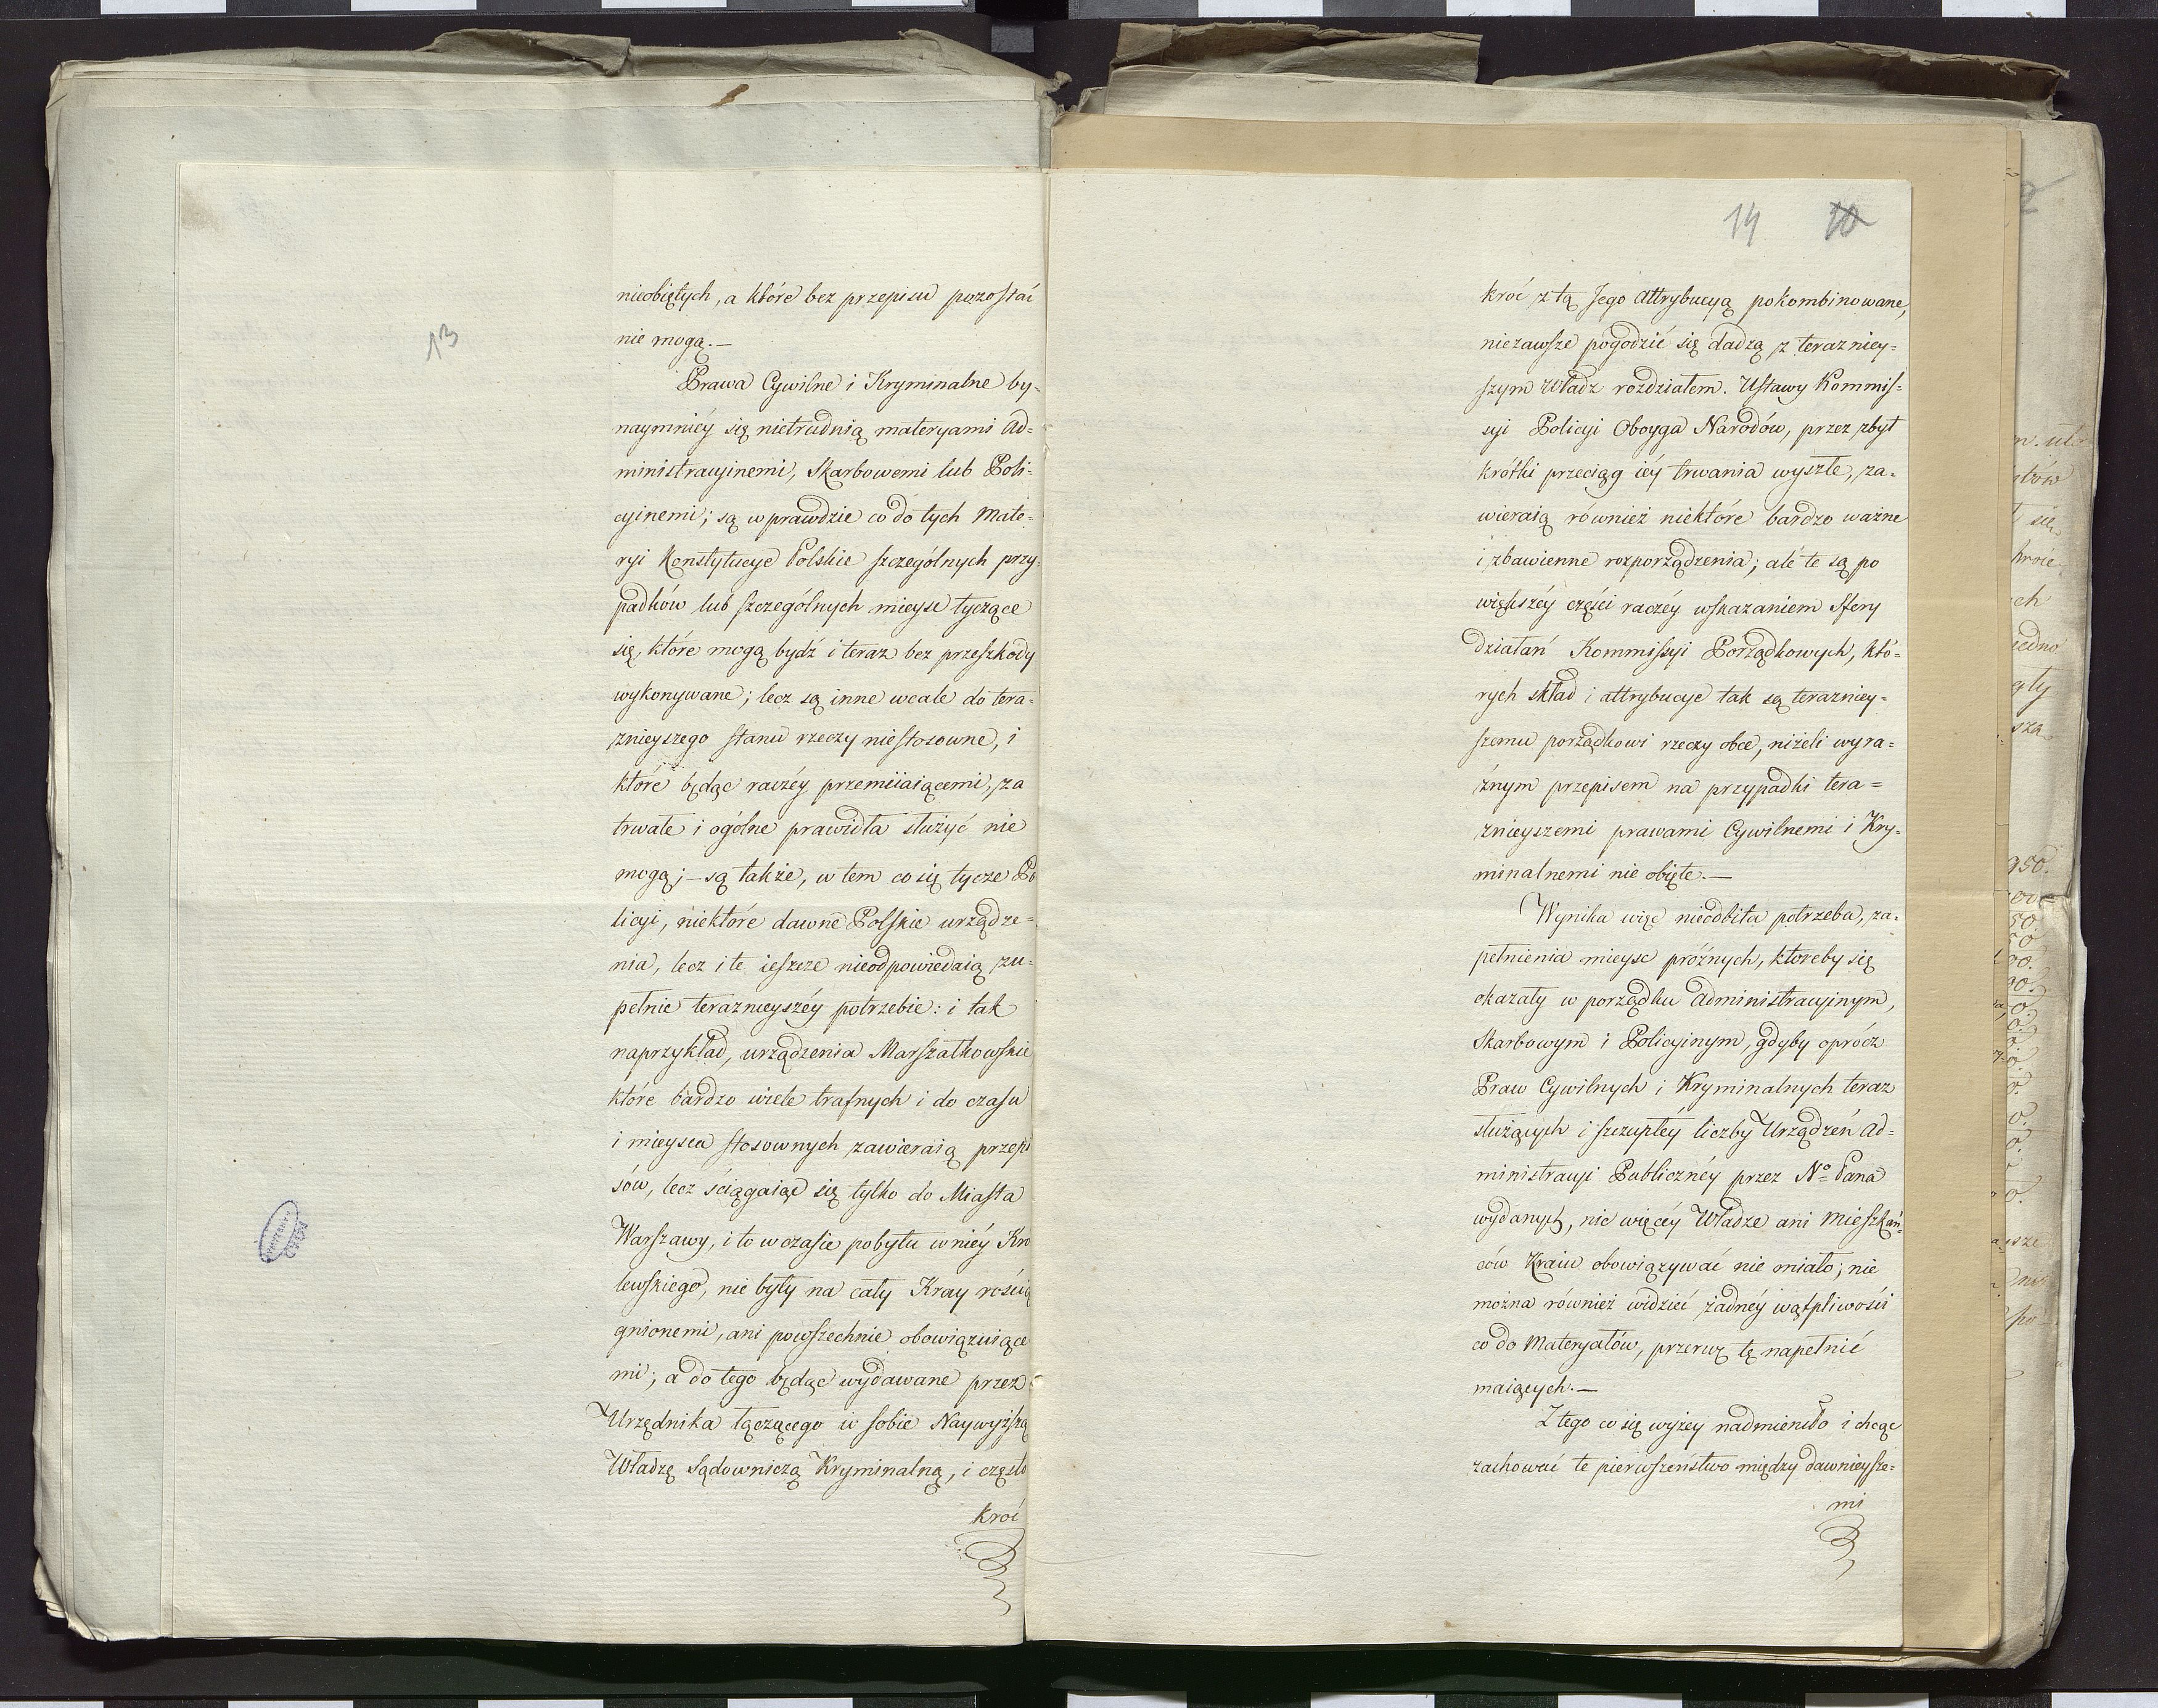 13
nieobiętych, a które bez przepisu pozostać
nie mogą.—
Prawa Cywilne i Kryminalne by-
naymniéy się nietrudnią materyami Ad-
ministracyinemi, Skarbowemi lub Poli-
cyinemi; są wprawdzie co do tych Mate-
ryi Konstytucye Polskie szczególnych przy-
padków lub szczególnych mieysc tyczące
się, które mogą bydź i teraz bez przeszkody
wykonywane; lecz są inne wcale do tera-
znieyszego stanu rzeczy niestosowne, i
które będąc raczéy przemiiaiącemi, za
trwałe i ogólne prawidła służyć nie
mogą; — są także, w tem co się tycze Po
licyi, niektóre dawne Polskie urządze=
nia, lecz i te ieszcze nieodpowiedaią zu-
pełnie teraznieyszéy potrzebie: i tak
naprzykład, urządzenia Marszałkowskie
które bardzo wiele trafnych i do czasu
i mieysca stosownych zawieraią przepi
sów, lecz ściągaiąc się tylko do Miasta
Warszawy, i to w czasie pobytu w niéy Kró
lewskiego, nie były na cały Kray rością
gnionemi, ani powszechnie obowiązuiące
mi; a do tego będąc wydawane przez
Urzędnika łączącego w sobie Naywyższą
Władzę Sądowniczą Kryminalną, i często
kroć
14 10
kroć z tą Jego Attrybucyą pokombinowane,
niezawsze pogodzić się dadzą z teraz niey=
szym Władz rozdziałem. Ustawy Kommis=
syi Policyi Oboyga Narodów, przez zbyt
krótki przeciąg iéy trwania wyszłe, za-
wieraią również niektóre bardzo ważne
i zbawienne rozporządzenia; ale te są po
większéy części raczéy wskazaniem Sfery
działań Kommissyi Porządkowych, któ=
rych skład i attrybucye tak są terazniey=
szemu porządkowi rzeczy obce, niżeli wyra=
źnym przepisem na przypadki tera=
znieyszemi prawami Cywilnemi i Kry-
minalnemi nie obięte.—
Wynika więc nieodbita potrzeba, za-
pełnienia mieysc próżnych, któreby się
okazały w porządku Administracyinym,
Skarbowym i Policyinym, gdyby oprócz
Praw Cywilnych i Kryminalnych teraz
służących i szczupłéy liczby Urządzeń Ad-
ministracyi Publicznéy przez No Pana
wydanych, nic więcéy Władze ani Mieszkań-
ców Kraiu obowiązywać nie miało; nie
można również widzieć żadnéy wątpliwości
co do Materyałów, przerwę tę napełnić
maiących.—
Z tego co się wyżey nadmieniło i chcąc
zachować te pierwszeństwo między dawnieysze-
mi